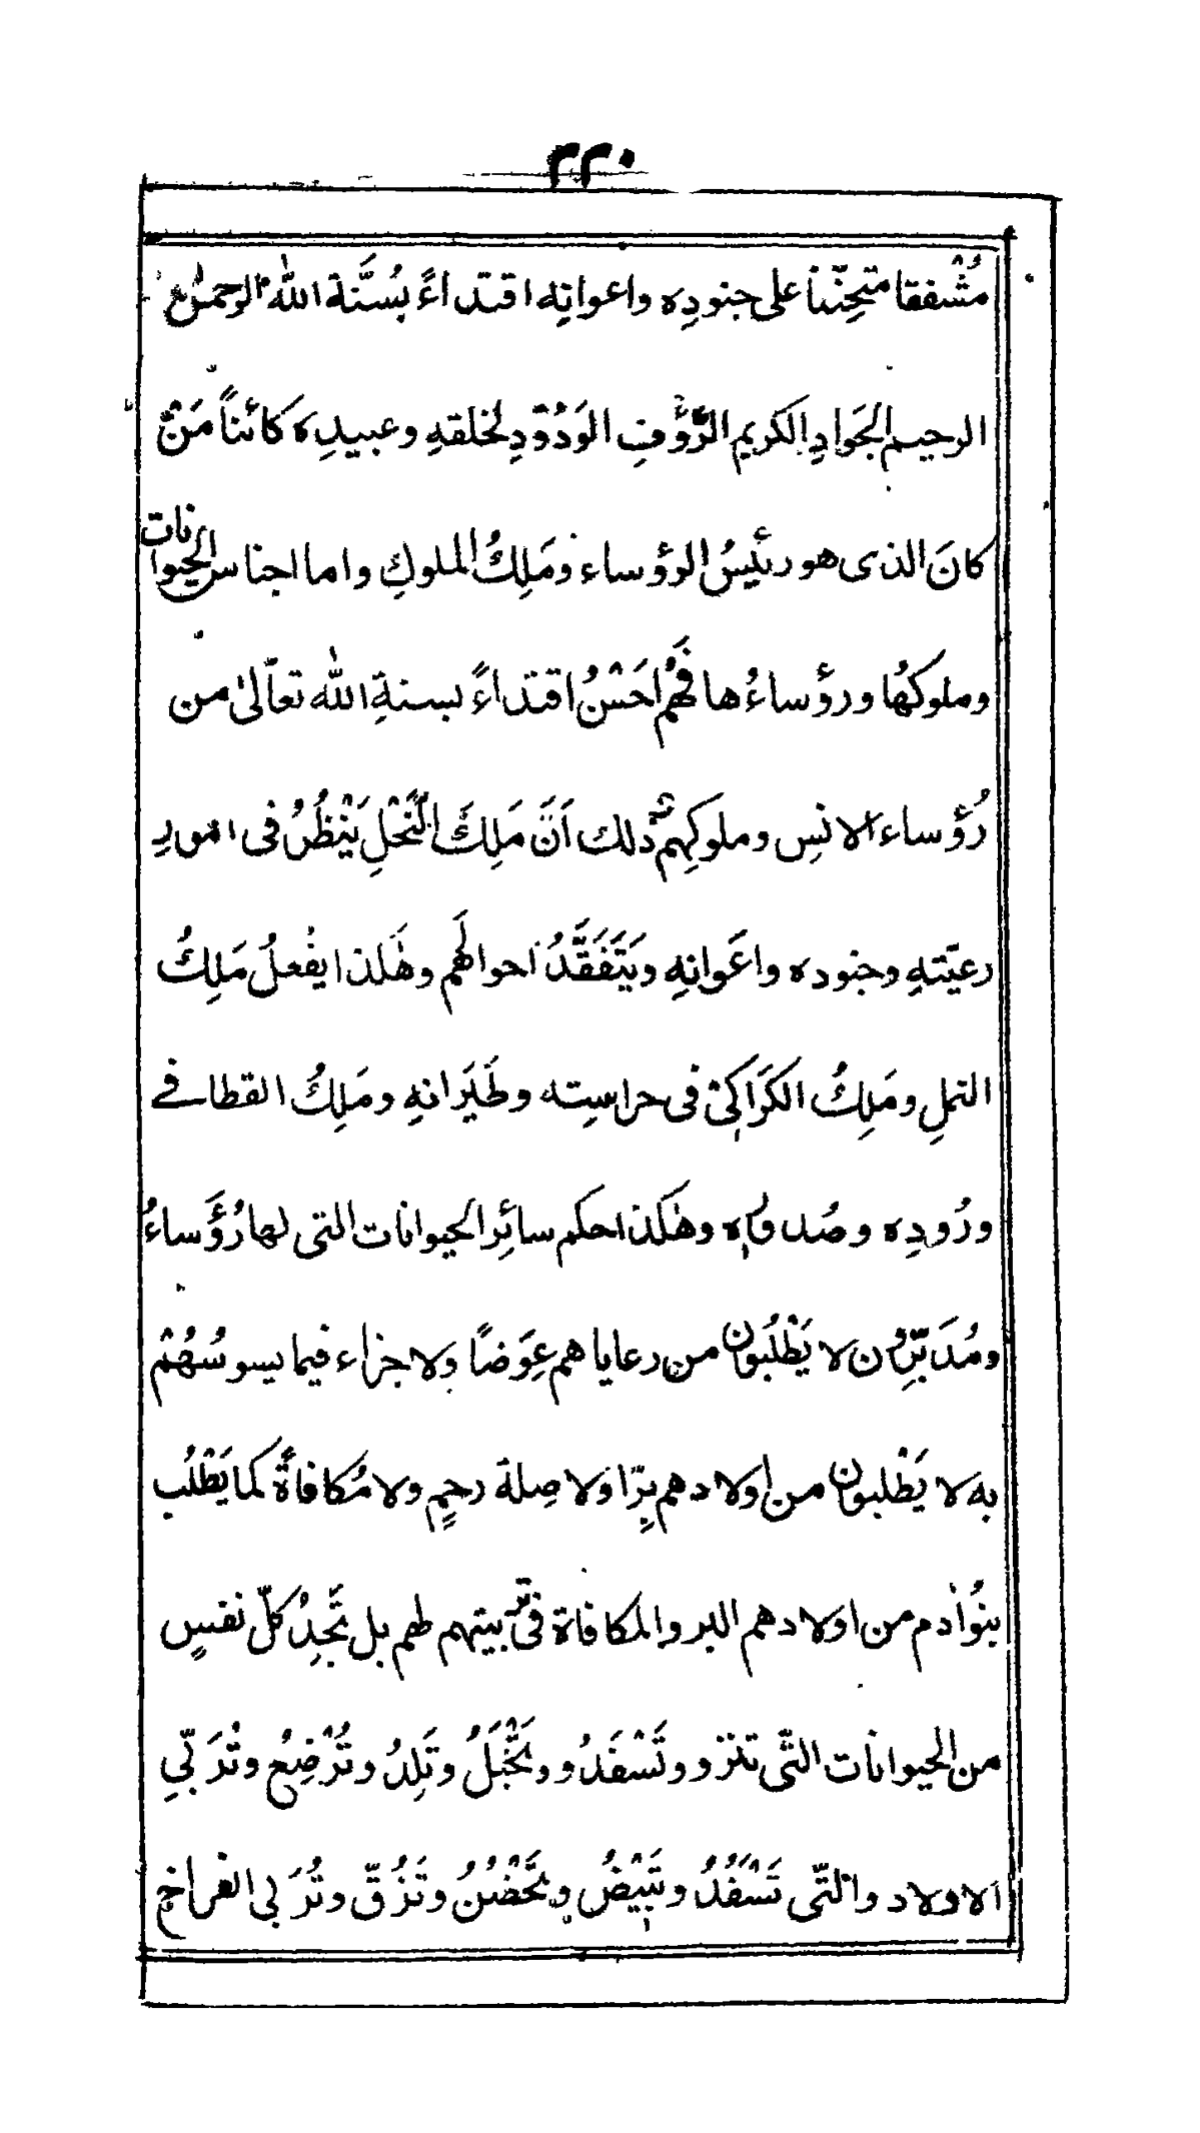 ٢٢٠
مُشْفقا متحنِّناً على جنودِه واعوانِه اقتداءً بسُنَّة اللّٰه الرحمٰن
الرحيم الجَوادِ الكريم الرَّؤُفِ الوَدُوْدِ لخلقهِ وعبيدِه كائناً مَنْ
كانَ الذى هو رئيسُ الرؤساء ومَلِكُ الملوكِ واما اجناس الحيوانات
وملوكهُا ورؤساءُها فَهُم اَحَسْنُ اقتداءً بسنةِ اللّٰه تعاّلىٰ من
رُؤساء الانسِ وملوكِهِم ذلك اَنَّ مَلِكَ النَّحْلِ يَنْظُرُ فى امورِ
رعيّتهِ وجنوده واعَوانِهِ ويَتَفَقَّدُ احوالَهم وهٰكذا يفْعلُ مَلِكُ
النملِ ومَلِكُ الكَرَاكِىْ فى حراسِته وطَيَرانهِ ومَلِكُ القطا فے
ورُودِه وصُدورِه وهٰكذا حكم سائِر الحيوانات التى لها رُؤَساءُ
ومُدَبِّرُون لا يَطْلُبون من رعاياهم عِوَضًا ولا جزاء فيما يسوسُهُمْ
به لا يَطْلبون من اولادهم بِرّا ولا صِلة رحِمٍ ولا مُكافأةً كما يَطْلُب
بنوُاٰدم من اولادهم البر والمكافاة فى تَرْبيتهم لهم بل تَجِدُ كلّ نفسٍ
من الحيوانات التّى تنزو وتَسْفَدُ وتَحْبَلُ وتَلِدُ وتُرْضِعُ وتُرَبّي
الاولاد والتّى تَسْفَدُ وتَبِيْضُ وتَحْضُنُ وتَزُقّ وتُرَبى الفراخ